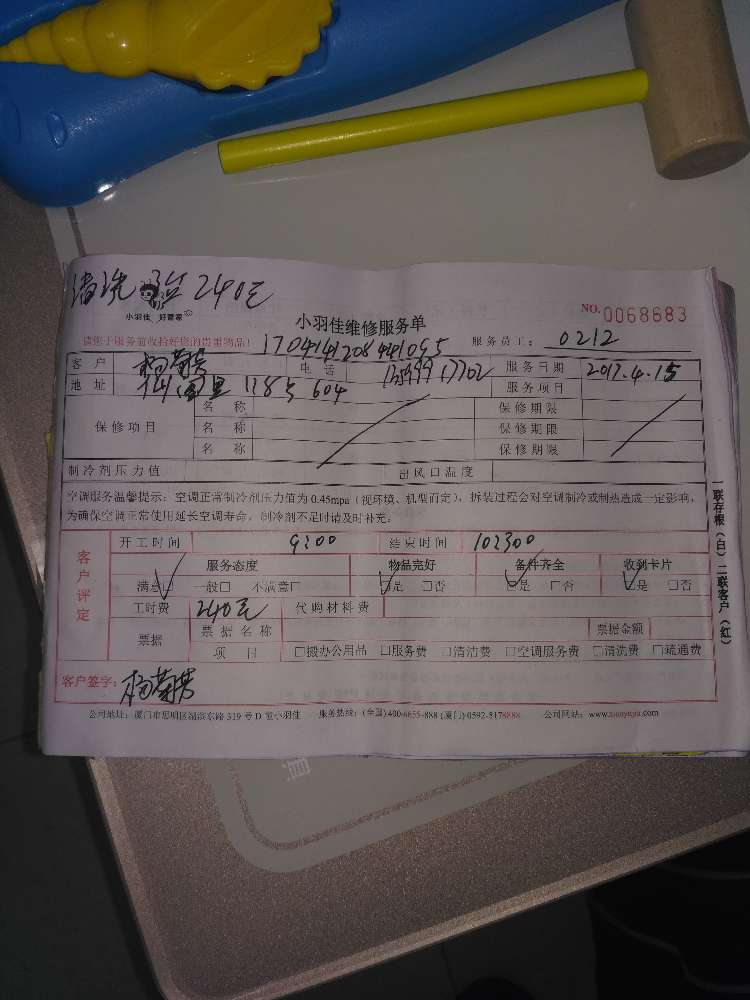 清洗 3台240元
小羽佳 好管家
小羽佳维修服务单
NO. 0068683
请您于服务前收拾好您的贵重物品!
服务员工: 0212
客户 杨菊芳 电话 服务日期 2017.4.15
地址 118号 604 服务项目
保修项目
名称 保修期限
名称 保修期限
名称 保修期限
制冷剂压力值 出风口温度
空调服务温馨提示: 空调正常制冷剂压力值为0.45mpa (视环境、机型而定), 拆装过程会对空调制冷或制热造成一定影响,
为确保空调正常使用延长空调寿命, 制冷剂不足时请及时补充。
客户评定
开工时间 9:00 结束时间
服务态度 物品完好 备件齐全 收到卡片
满意□ 一般□ 不满意□ □是 □否 □是 □否 □是 □否
工时费 240元 代购材料费
票据 票据名称 票据金额
项目 □搬办公用品 □服务费 □清洁费 □空调服务费 □清洗费 □疏通费
客户签字: 杨菊芳
公司地址: 厦门市思明区湖滨东路319号D 室小羽佳 服务热线: (全国)400-6655-888 (厦门) 0592-5178888 公司网站: www.xiaoyujia.com
一联存根(白) 二联客户(红)